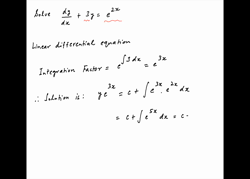 Solve dy/dx + 3y = e^2x
Linear differential equation
Integration Factor = e^∫3dx = e^3x
∴ Solution is: ye^3x = c + ∫e^3x . e^2x dx
= c + ∫e^5x dx = c